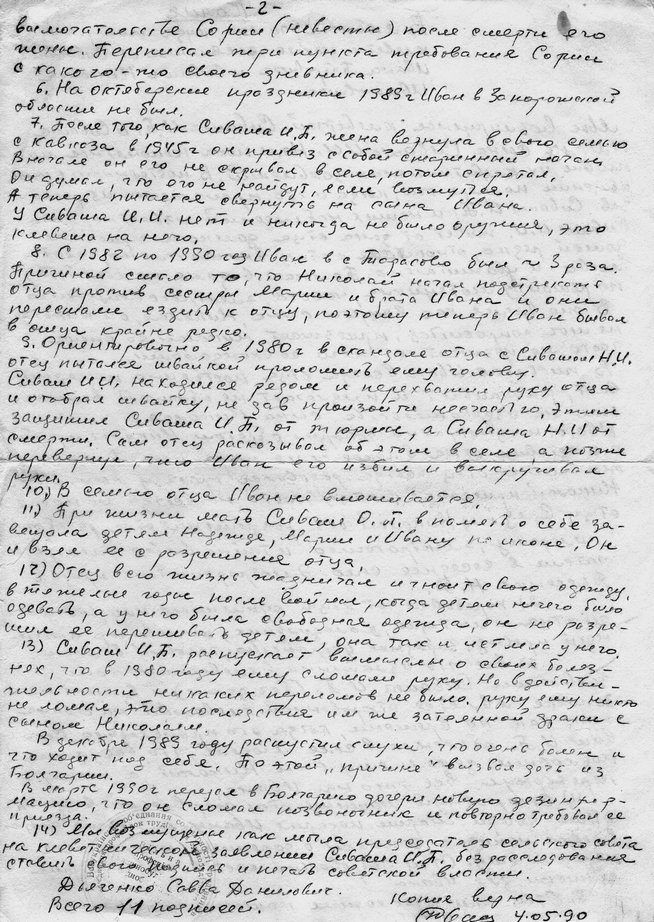 - 2 -
вымогательстве Сории (невестки) после смерти его
жены. Переписал три пункта требования Сории
с какого-то своего дневника.
6. На октябрьские праздники 1989 г Иван в Запорожской
области не был.
7. После того, как Сиваша И.П. жена вернула в свою семью
с кавказа в 1945 г он привёз с собой старинный наган,
Вначале он его не скрывал в селе, потом спрятал,
Он думал, что его не найдут, если возьмутся.
А теперь пытается свернуть на сына Ивана.
У Сиваша И.И. нет и никогда не было оружия, это
клевета на него.
8. С 1982 по 1990 год Иван в с Тарасово был 2-3 раза.
Причиной стало то, что Николай начал подстрекать
отца против сестры Марии и брата Ивана и они
перестали ездить к отцу, поэтому теперь Иван бывал
в отца крайне редко.
9. Ориентировочно в 1980 г в скандале отца с Сивашом Н.И.
отец пытался швайкой проломить ему голову.
Сиваш И.И. находился рядом и перехватил руку отца
и отобрал швайку, не дав произойти несчастью, этим
защитил Сиваша И.П. от тюрьмы, а Сиваша Н.И от
смерти. Сам отец рассказывал об этом в селе а позже
перевернул, что Иван его избил и выкручивал
руки.
10.) В семью отца Иван не вмешивается.
11.) При жизни мать Сиваш О.П. в память о себе за-
вещала детям Надежде, Марии и Ивану по иконе, Он
и взял ее с разрешения отца.
12) Отец всю жизнь жадничал и гноит свою одежду,
в тяжелые годы после войны, когда детям нечего было
одевать, а у него была свободная одежда, он не разре-
шил ее перешивать детям, она так и истлела у него.
13) Сиваш И.П. распускает вымыслы о своих болез-
нях, что в 1980 году ему сломали руку. Но в действи-
тельности никаких переломов не было. руку ему никто
не ломал, это последствия им же затеянной драки с
сыном Николаем.
В декабре 1989 году распустил слухи, что очень болен и
что ходит под себя. По этой „причине" вызвал дочь из
Болгарии.
В марте 1990 г передал в Болгарию дочери новую дезинфор-
мацию, что он сломал позвоночник и повторно требовал ее
приезда.
14) Мы возмущены как могла председатель сельского совета
на клеветническом заявлении Сиваша И.П. без расследования
ставить свою подпись и печать советской власти.
Дьяченко Савва Данилович.
Всего 11 подписей.
Копия верна
4.05.90